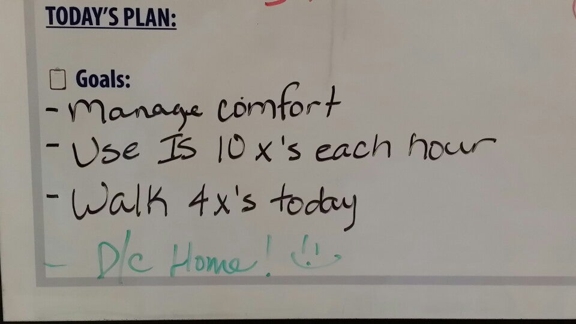 TODAY'S PLAN:
Goals:
- Manage comfort
- Use IS 10x's each hour
- Walk 4x's today
- D/c Home!